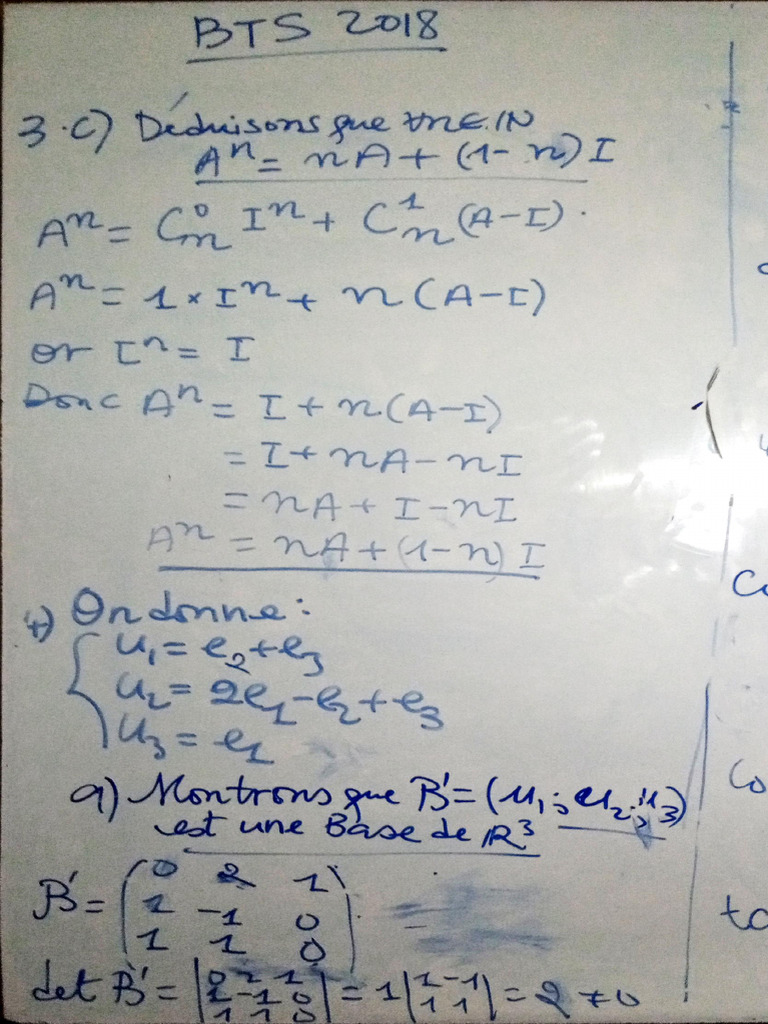 BTS 2018
3.c) Déduisons que ∀n∈IN
Aⁿ = nA + (1-n)I
Aⁿ = Cₙ⁰ Iⁿ + Cₙ¹ (A-I).
Aⁿ = 1 × Iⁿ + n(A-I)
or Iⁿ = I
Donc Aⁿ = I + n(A-I)
= I + nA - nI
= nA + I - nI
Aⁿ = nA + (1-n) I
4) On donne :
{ u₁ = e₂ + e₃
u₂ = 2e₁ - e₂ + e₃
u₃ = e₁
a) Montrons que B' = (u₁; u₂; u₃)
est une Base de IR³
B' = (0 2 1
1 -1 0
1 1 0)
det B' = |0 2 1 1 -1 0 1 1 0| = 1 |1 -1 1 1| = 2 ≠ 0